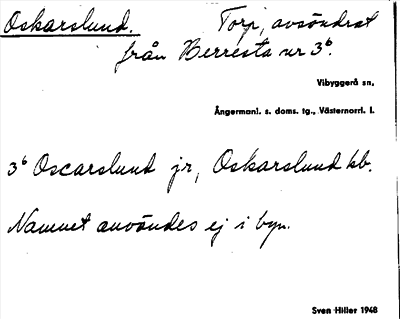 Oskarslund. Torp, avsöndrat
från Berresta nr 3b.
Vibyggerå sn,
Ångermanl. s. doms. tg., Västernorrl. l.
3b Oscarslund jr, Oskarslund kb.
Namnet användes ej i byn.
Sven Hiller 1948